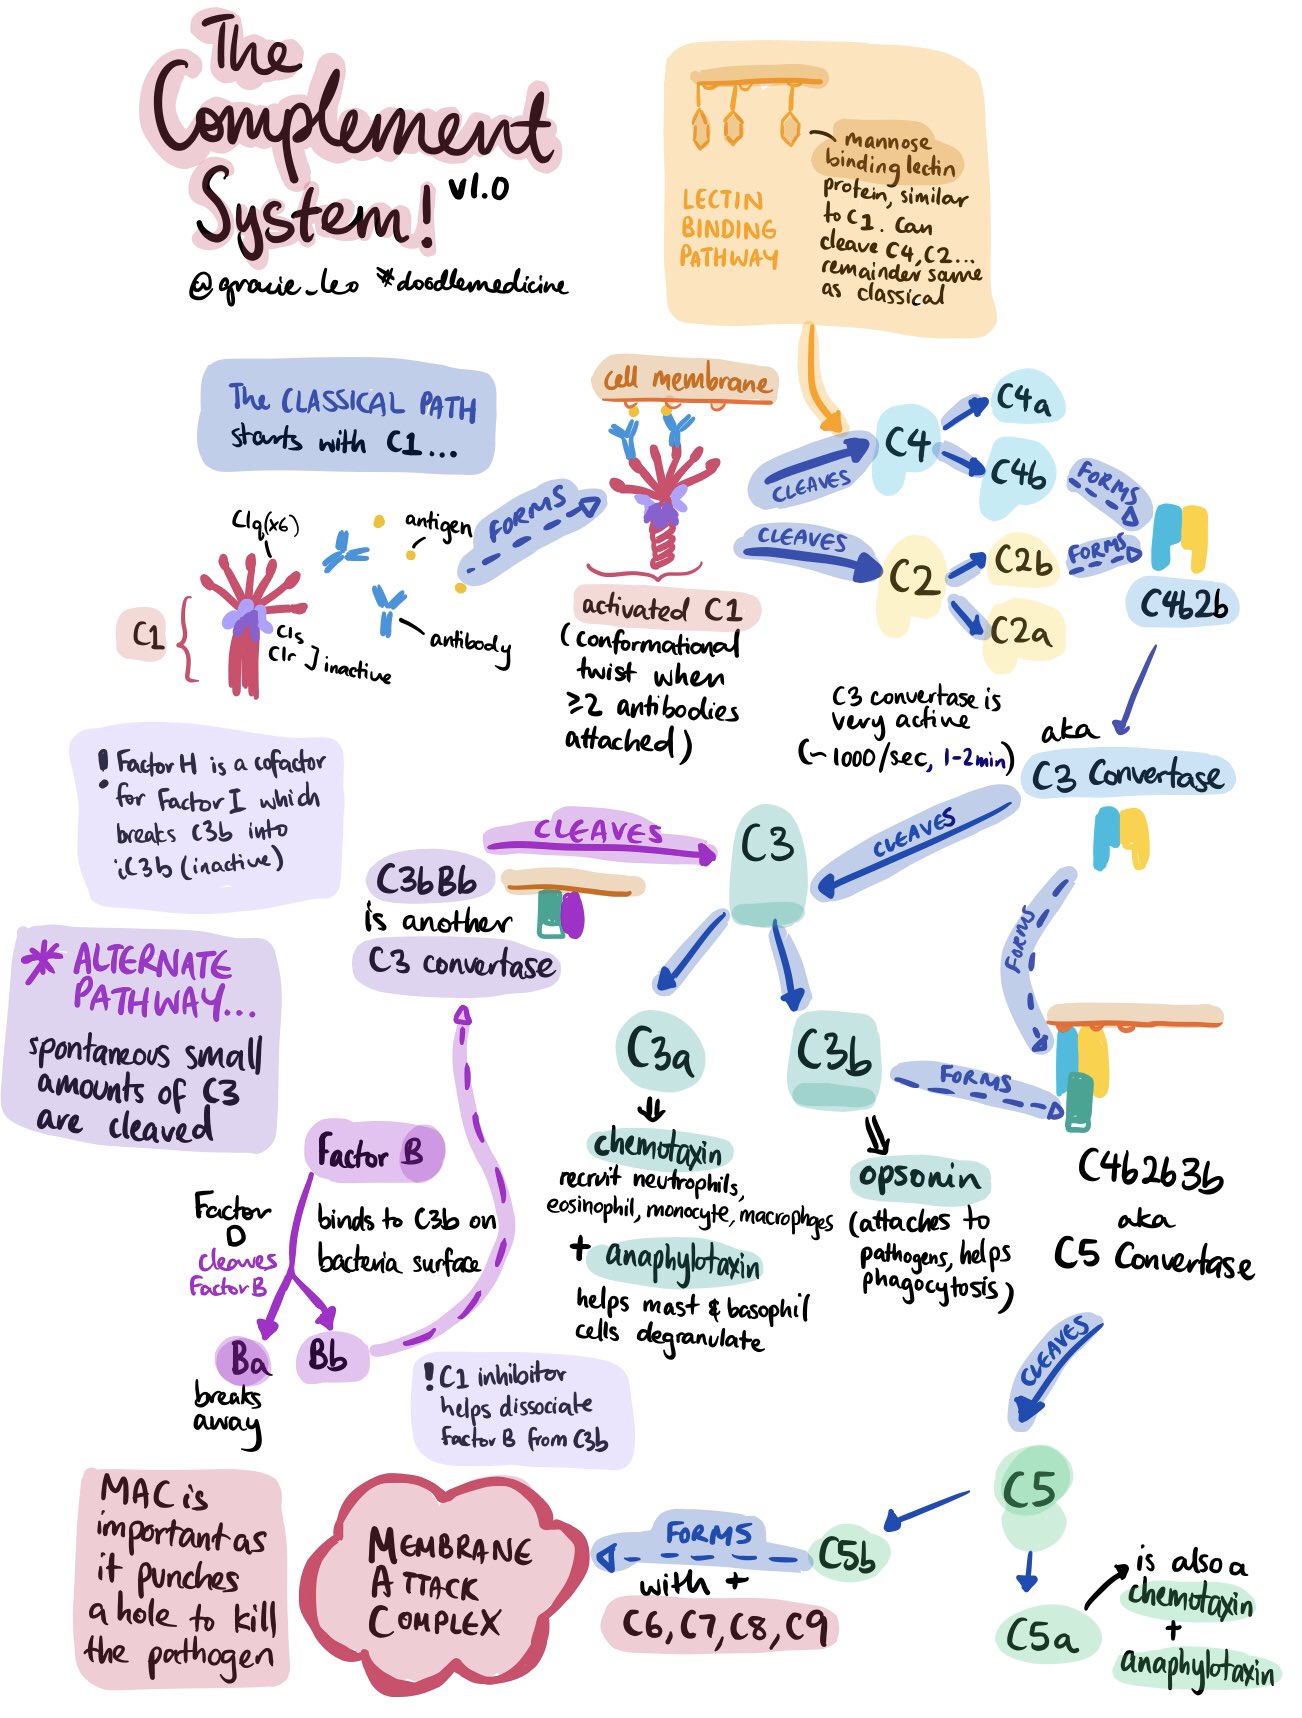 The
Complement
System! v1.0
@gracie_leo #doodlemedicine
LECTIN
BINDING
PATHWAY
mannose
binding lectin
protein, similar
to C1. Can
cleave C4, C2...
remainder same
as classical
The CLASSICAL PATH
starts with C1...
cell membrane
C1q(x6)
antigen
FORMS
C1
C1s
C1r ] inactive
antibody
activated C1
(conformational
twist when
≥2 antibodies
attached)
CLEAVES
C4
C4a
C4b
FORMS
CLEAVES
C2
C2b
C2a
FORMS
C4b2b
aka
C3 Convertase
C3 convertase is
very active
(~1000/sec, 1-2min)
! Factor H is a cofactor
for Factor I which
breaks C3b into
iC3b (inactive)
CLEAVES
C3bBb
is another
C3 convertase
C3
CLEAVES
FORMS
* ALTERNATE
PATHWAY...
spontaneous small
amounts of C3
are cleaved
C3a
C3b
FORMS
chemotaxin
recruit neutrophils,
eosinophil, monocyte, macrophges
+ anaphylotaxin
helps mast & basophil
cells degranulate
opsonin
(attaches to
pathogens, helps
phagocytosis)
C4b2b3b
aka
C5 Convertase
Factor B
Factor
D
cleaves
Factor B
binds to C3b on
bacteria surface
Ba
breaks
away
Bb
! C1 inhibitor
helps dissociate
Factor B from C3b
CLEAVES
C5
C5b
C5a
is also a
chemotaxin
+
anaphylotaxin
FORMS
with +
C6, C7, C8, C9
MEMBRANE
ATTACK
COMPLEX
MAC is
important as
it punches
a hole to kill
the pathogen